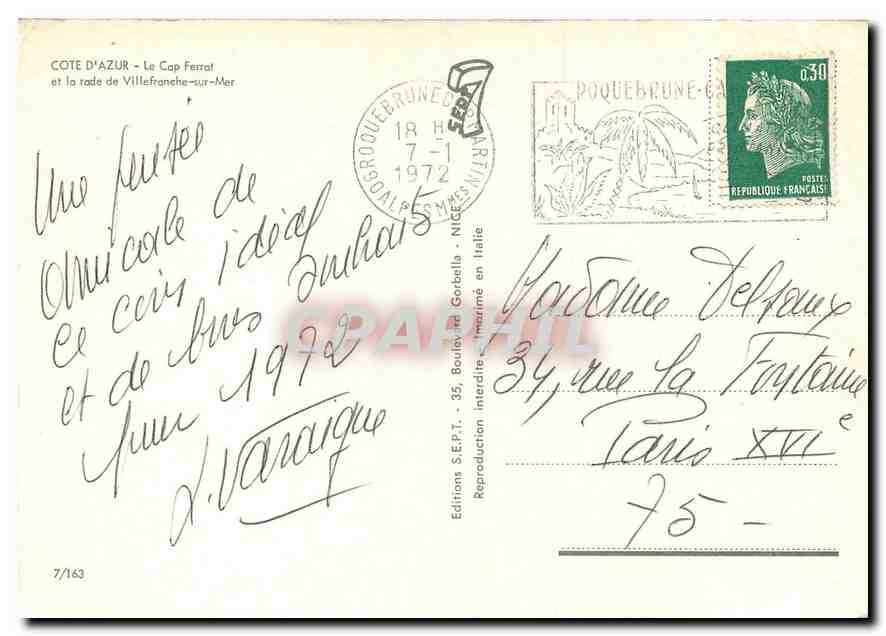 COTE D'AZUR - Le Cap Ferrat
et la rade de Villefranche-sur-Mer
Une pensée
amicale de
ce coin idéal
et de bons souhaits
pour 1972
SEPT
ROQUEBRUNE CAP ST MARTIN
18 H
7-1
1972
ALPES MMES
ROQUEBRUNE-CA
0,30
POSTES
REPUBLIQUE FRANÇAISE
Madame Delsaux
34, rue La Fontaine
Paris XVIe
75-
Editions S.E.P.T. - 35, Boulevard Gorbella - NICE
Reproduction interdite - Imprimé en Italie
CPAPHIL
7/163